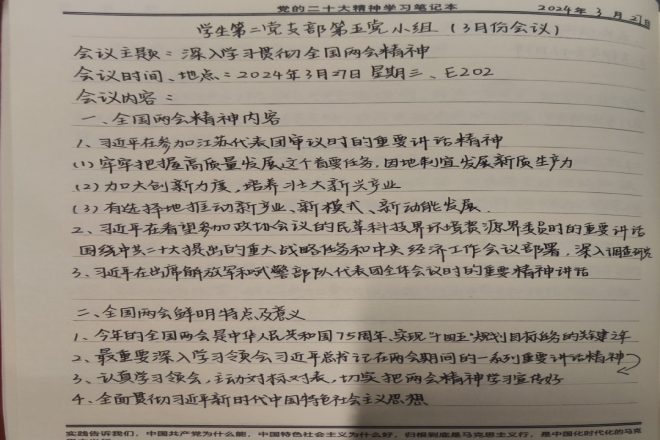 党的二十大精神学习笔记本
2024年3月27日
学生第二党支部第五党小组（3月份会议）
会议主题：深入学习贯彻全国两会精神
会议时间、地点：2024年3月27日 星期三、E202
会议内容：
一、全国两会精神内容
1、习近平在参加江苏代表团审议时的重要讲话精神
(1) 牢牢把握高质量发展这个首要任务，因地制宜发展新质生产力
(2) 加大创新力度，培养壮大新兴产业
(3) 有选择地推动新产业、新模式、新动能发展.
2、习近平在看望参加政协会议的民革科技界环境资源界委员时的重要讲话
围绕中共二十大提出的重大战略任务和中央经济工作会议部署，深入调查研究
3、习近平在出席解放军和武警部队代表团全体会议时的重要精神讲话
二、全国两会鲜明特点及意义
1、今年的全国两会是中华人民共和国75周年、实现"十四五"规划目标任务的关键之年
2、最重要深入学习领会习近平总书记在两会期间的一系列重要讲话精神
3、认真学习领会，主动对标对表，切实把两会精神学习宣传好
4、全面贯彻习近平新时代中国特色社会主义思想
实践告诉我们，中国共产党为什么能，中国特色社会主义为什么好，归根到底是马克思主义行，是中国化时代化的马克